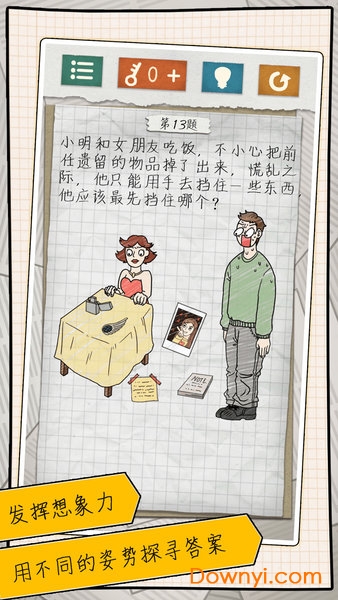 0 +
第13题
小明和女朋友吃饭，不小心把前
任遗留的物品掉了出来，慌乱之
际，他只能用手去挡住一些东西，
他应该最先挡住哪个？
NOTE
发挥想象力
用不同的姿势探寻答案
当易网
Downyi.com